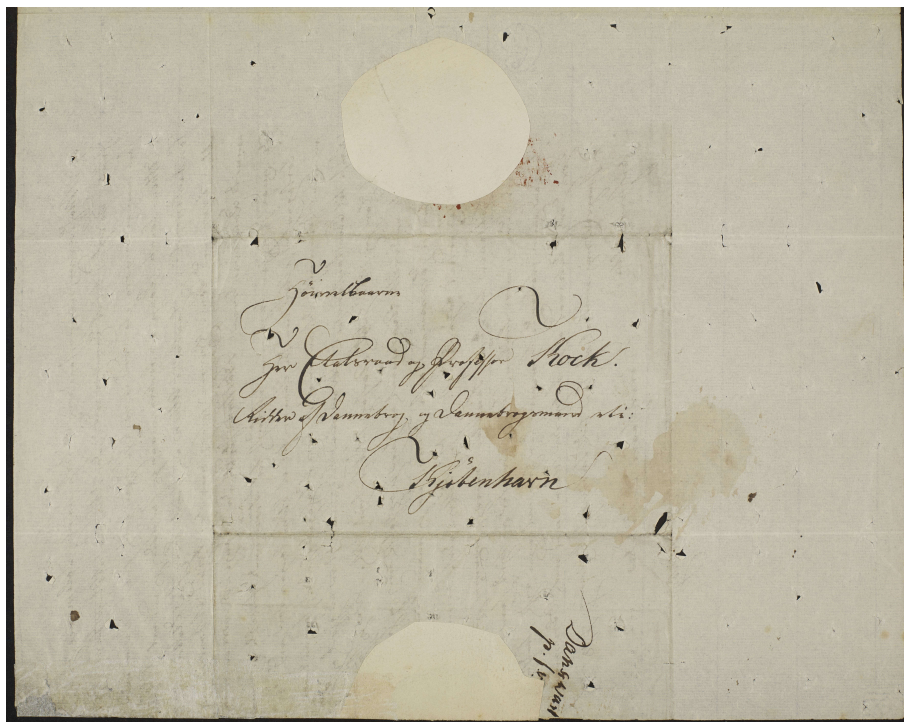 Høivelbaarne
Herr Etatsraad og Professor Kock!
Ridder af Dannebrog, og Dannebrogsmand etc:
Kjöbenhavn